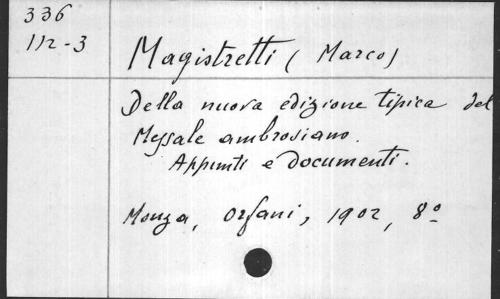 336
112-3
Magistretti (Marco)
Della nuova edizione tipica del
Messale ambrosiano.
Appunti e documenti.
Monza, Orfani, 1902, 8º